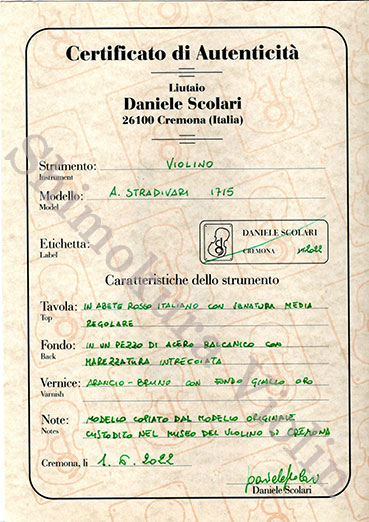 Certificato di Autenticità
Liutaio
Daniele Scolari
26100 Cremona (Italia)
Strumento: VIOLINO
Instrument
Modello: A. STRADIVARI 1715
Model
Etichetta:
Label
DANIELE SCOLARI
CREMONA 2022
Caratteristiche dello strumento
Tavola: IN ABETE ROSSO ITALIANO CON VENATURA MEDIA
Top
REGOLARE
Fondo: IN UN PEZZO DI ACERO BALCANICO CON
Back
MAREZZATURA INTRECCIATA
Vernice: ARANCIO-BRUNO CON FONDO GIALLO ORO
Varnish
Note: MODELLO COPIATO DAL MODELLO ORIGINALE
Notes
CUSTODITO NEL MUSEO DEL VIOLINO DI CREMONA
Cremona, li 1. 6. 2022
Daniele Scolari
Shimokura Violin